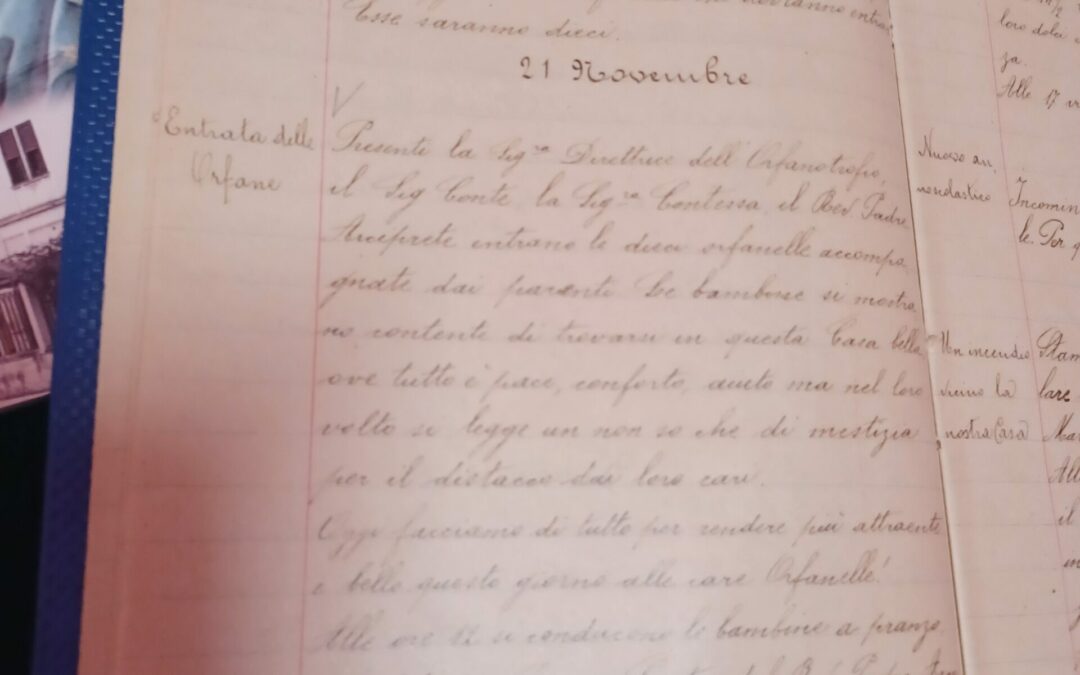 entra
Esse saranno dieci.
21 Novembre
Entrata delle
Orfane
Presenti la Sig.ra Direttrice dell'Orfanotrofio,
il Sig Conte, la Sig.ra Contessa, il Rev. Padre
Arciprete entrano le dieci orfanelle accompa
gnate dai parenti. Le bambine si mostra
no contente di trovarsi in questa Casa bella
ove tutto è pace, conforto, aiuto ma nel loro
volto si legge un non so che di mestizia
per il distacco dai loro cari.
Oggi facciamo di tutto per rendere più attraente
e bello questo giorno alle care Orfanelle!
Alle ore 12 si conducono le bambine a pranzo
loro dolci
ja.
Alle 17
Nuovo an
noscolastico
Incomin
le. Per
Un incendio
vicino la
nostra Casa
Stam
lare
Ma
All
il